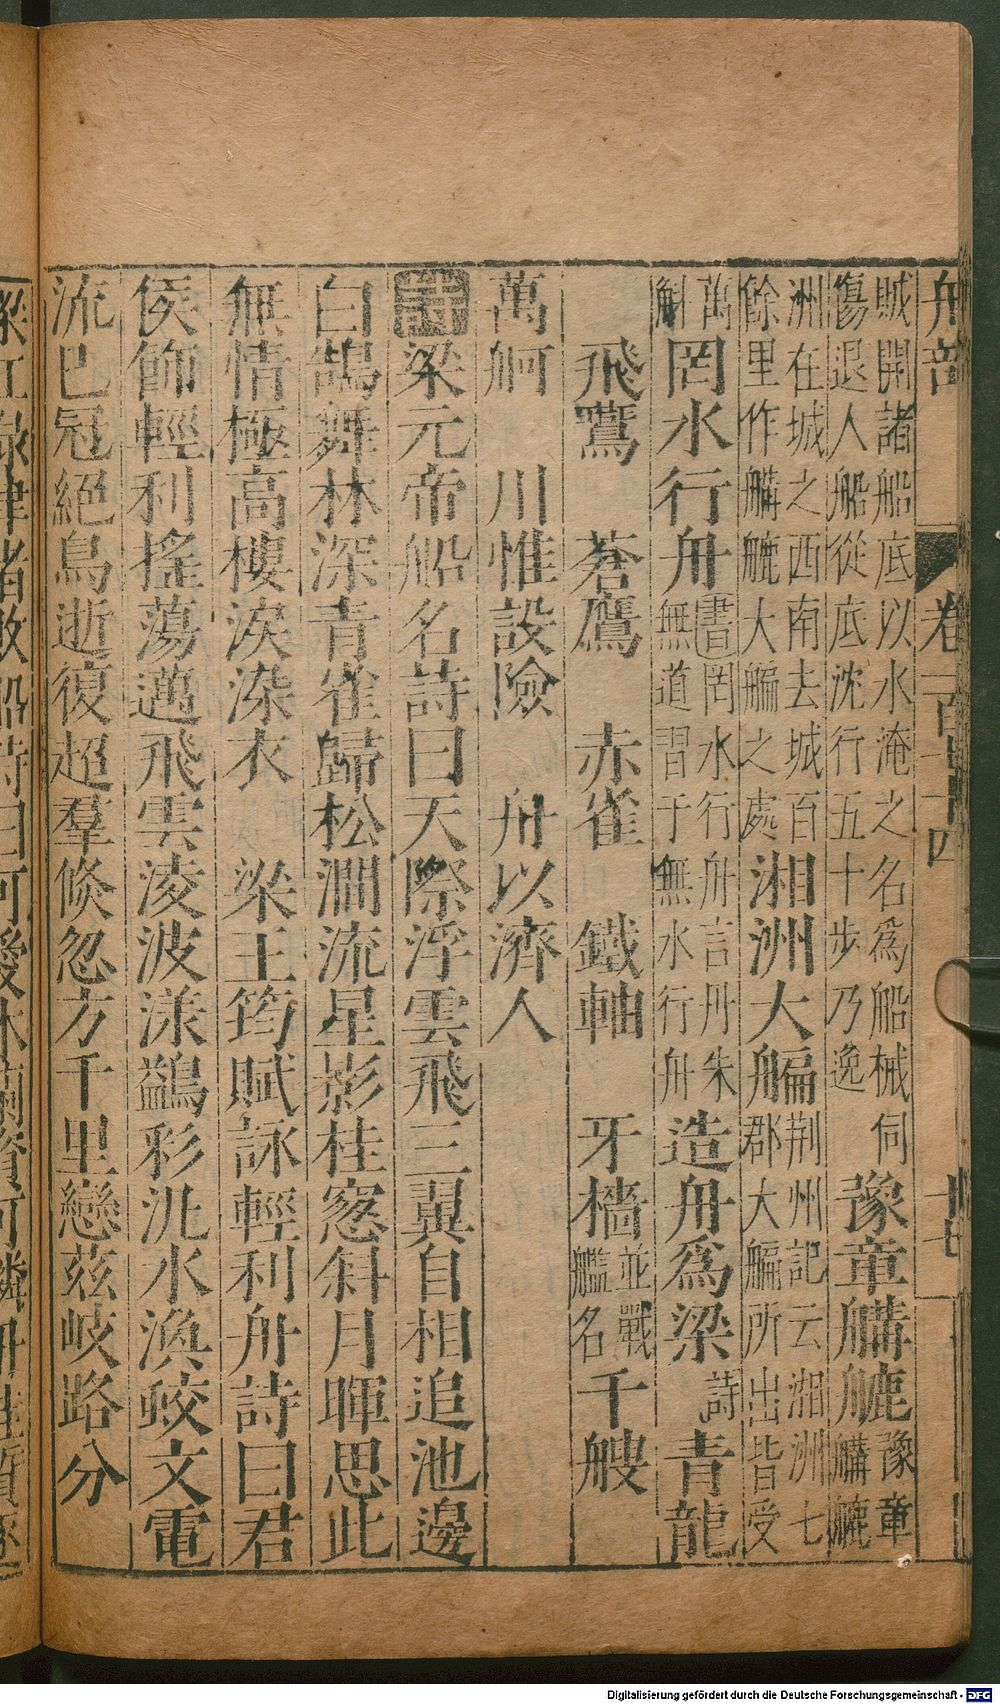 舟部 卷一百七十四 十七
賊開諸船底以水淹之名為船械伺
傷退人船從底沈行五十步乃逸
豫章
豫章
洲在城之西南去城百
餘里作大艑之處
湘洲大艑
荆州記云湘洲七
郡大艑所出皆受
萬
斛
罔水行舟
書罔水行舟言丹朱
無道習于無水行舟
造舟爲梁
詩
青龍
飛鷖 蒼鷹 赤雀 鐵軸 牙檣
並戰
艦名
千艘
萬舸 川惟設險 舟以濟人
詩梁元帝船名詩曰天際浮雲飛三翼自相追池邊
白鵠舞林深青雀歸松澗流星影桂窓斜月暉思此
無情極高樓淚染衣 梁王筠賦詠輕利舟詩曰君
侯飾輕利搖蕩邁飛雲凌波漾鷁彩汎水渙蛟文電
流已冠絕鳥逝復超羣倐忽方千里戀茲岐路分
Digitalisierung gefördert durch die Deutsche Forschungsgemeinschaft - DFG